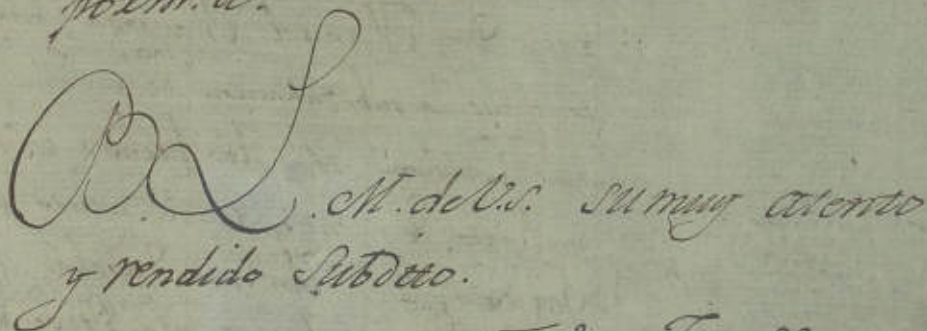 B. L. M. de V.S. su muy atento
y rendido Subdito.